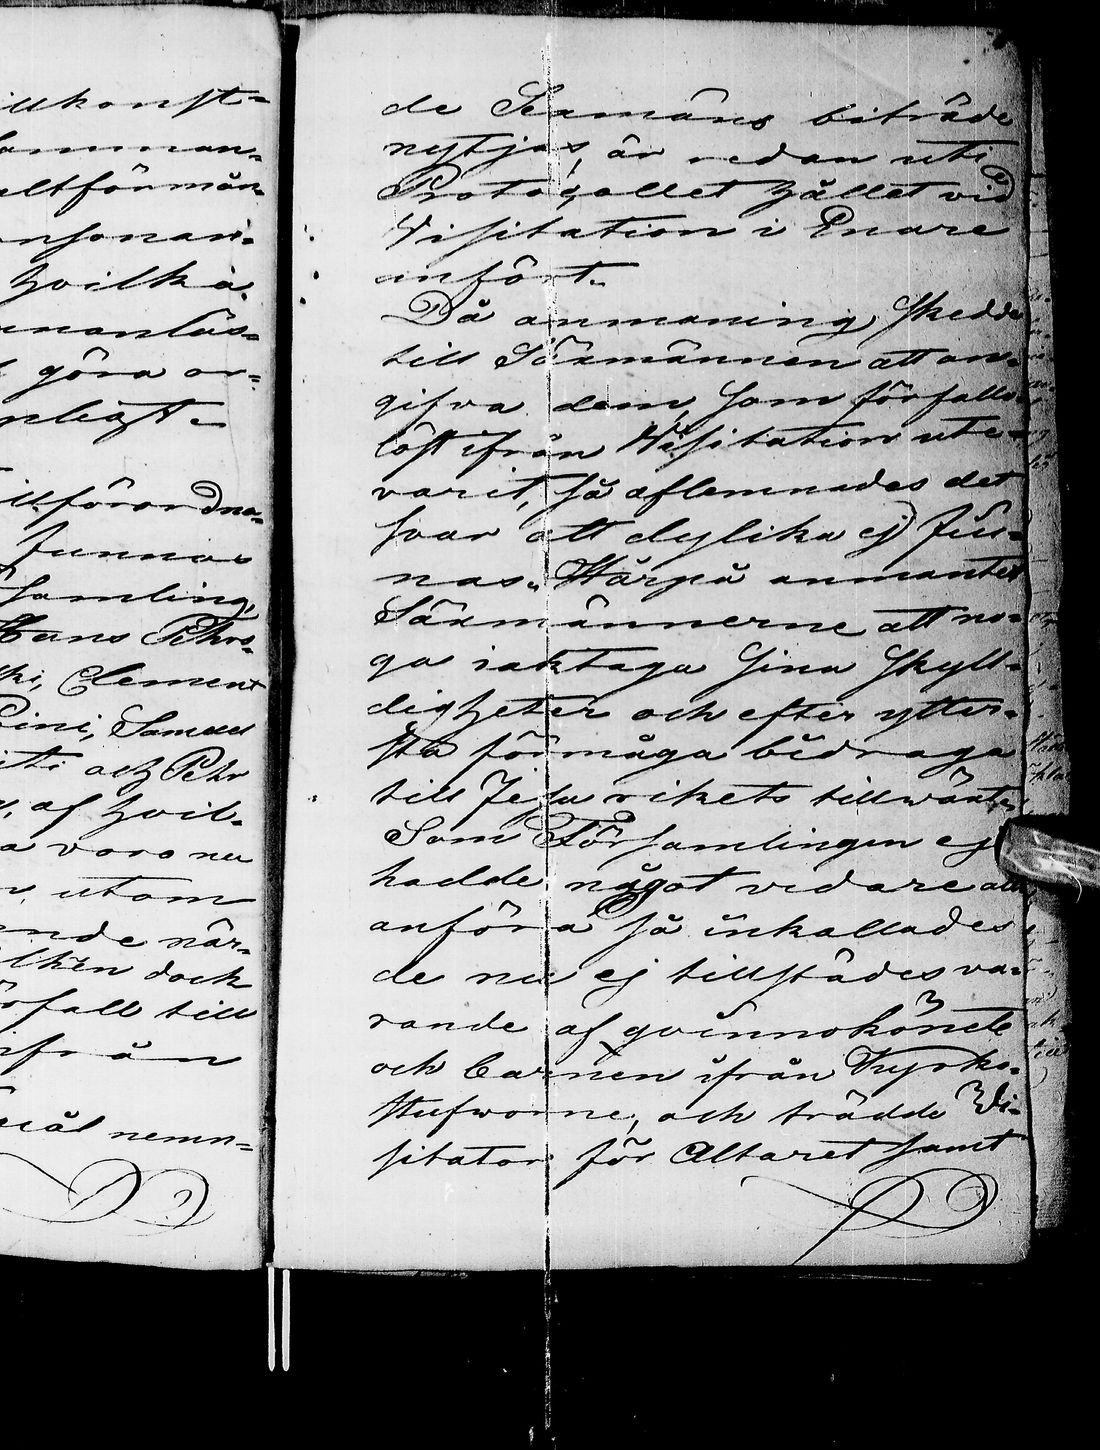 illkonst-
samman-
altförmån-
onsonan-
hvilka
unanläs-
göra or-
nligt.
illförordna-
Junnas
samling,
Hans Pehrs-
ki, Clement
Pini, Samuel
iti och Pehr
af hvil-
a voro nu
utom
ande när-
ilken dock
rfall till
ifrån
siäl nemn-
de Sexmäns biträde
nyttjas, är redan uti
Protogollet hållet vid
Visitation i Enare
infört.
Då anmaning skedde
till Säxmännen att an-
gifva dem som förfalls
löst ifrån Visitation ute-
varit, så aflemnades det
svar att dylika ej fin-
nas. Härpå anmantes
Säxmännerne att no-
ga iakttaga sina skyll-
digheter och efter ytter-
sta förmåga bidraga
till Jesu rikets tillwäxt.
Som Församlingen ej
hadde något vidare att
anföra så inkallades
de nu ej tillstädes va-
rande af qvinnokönet
och barnen ifrån Kyrko-
stufworne, och trädde Vi-
sitator för Altaret samt